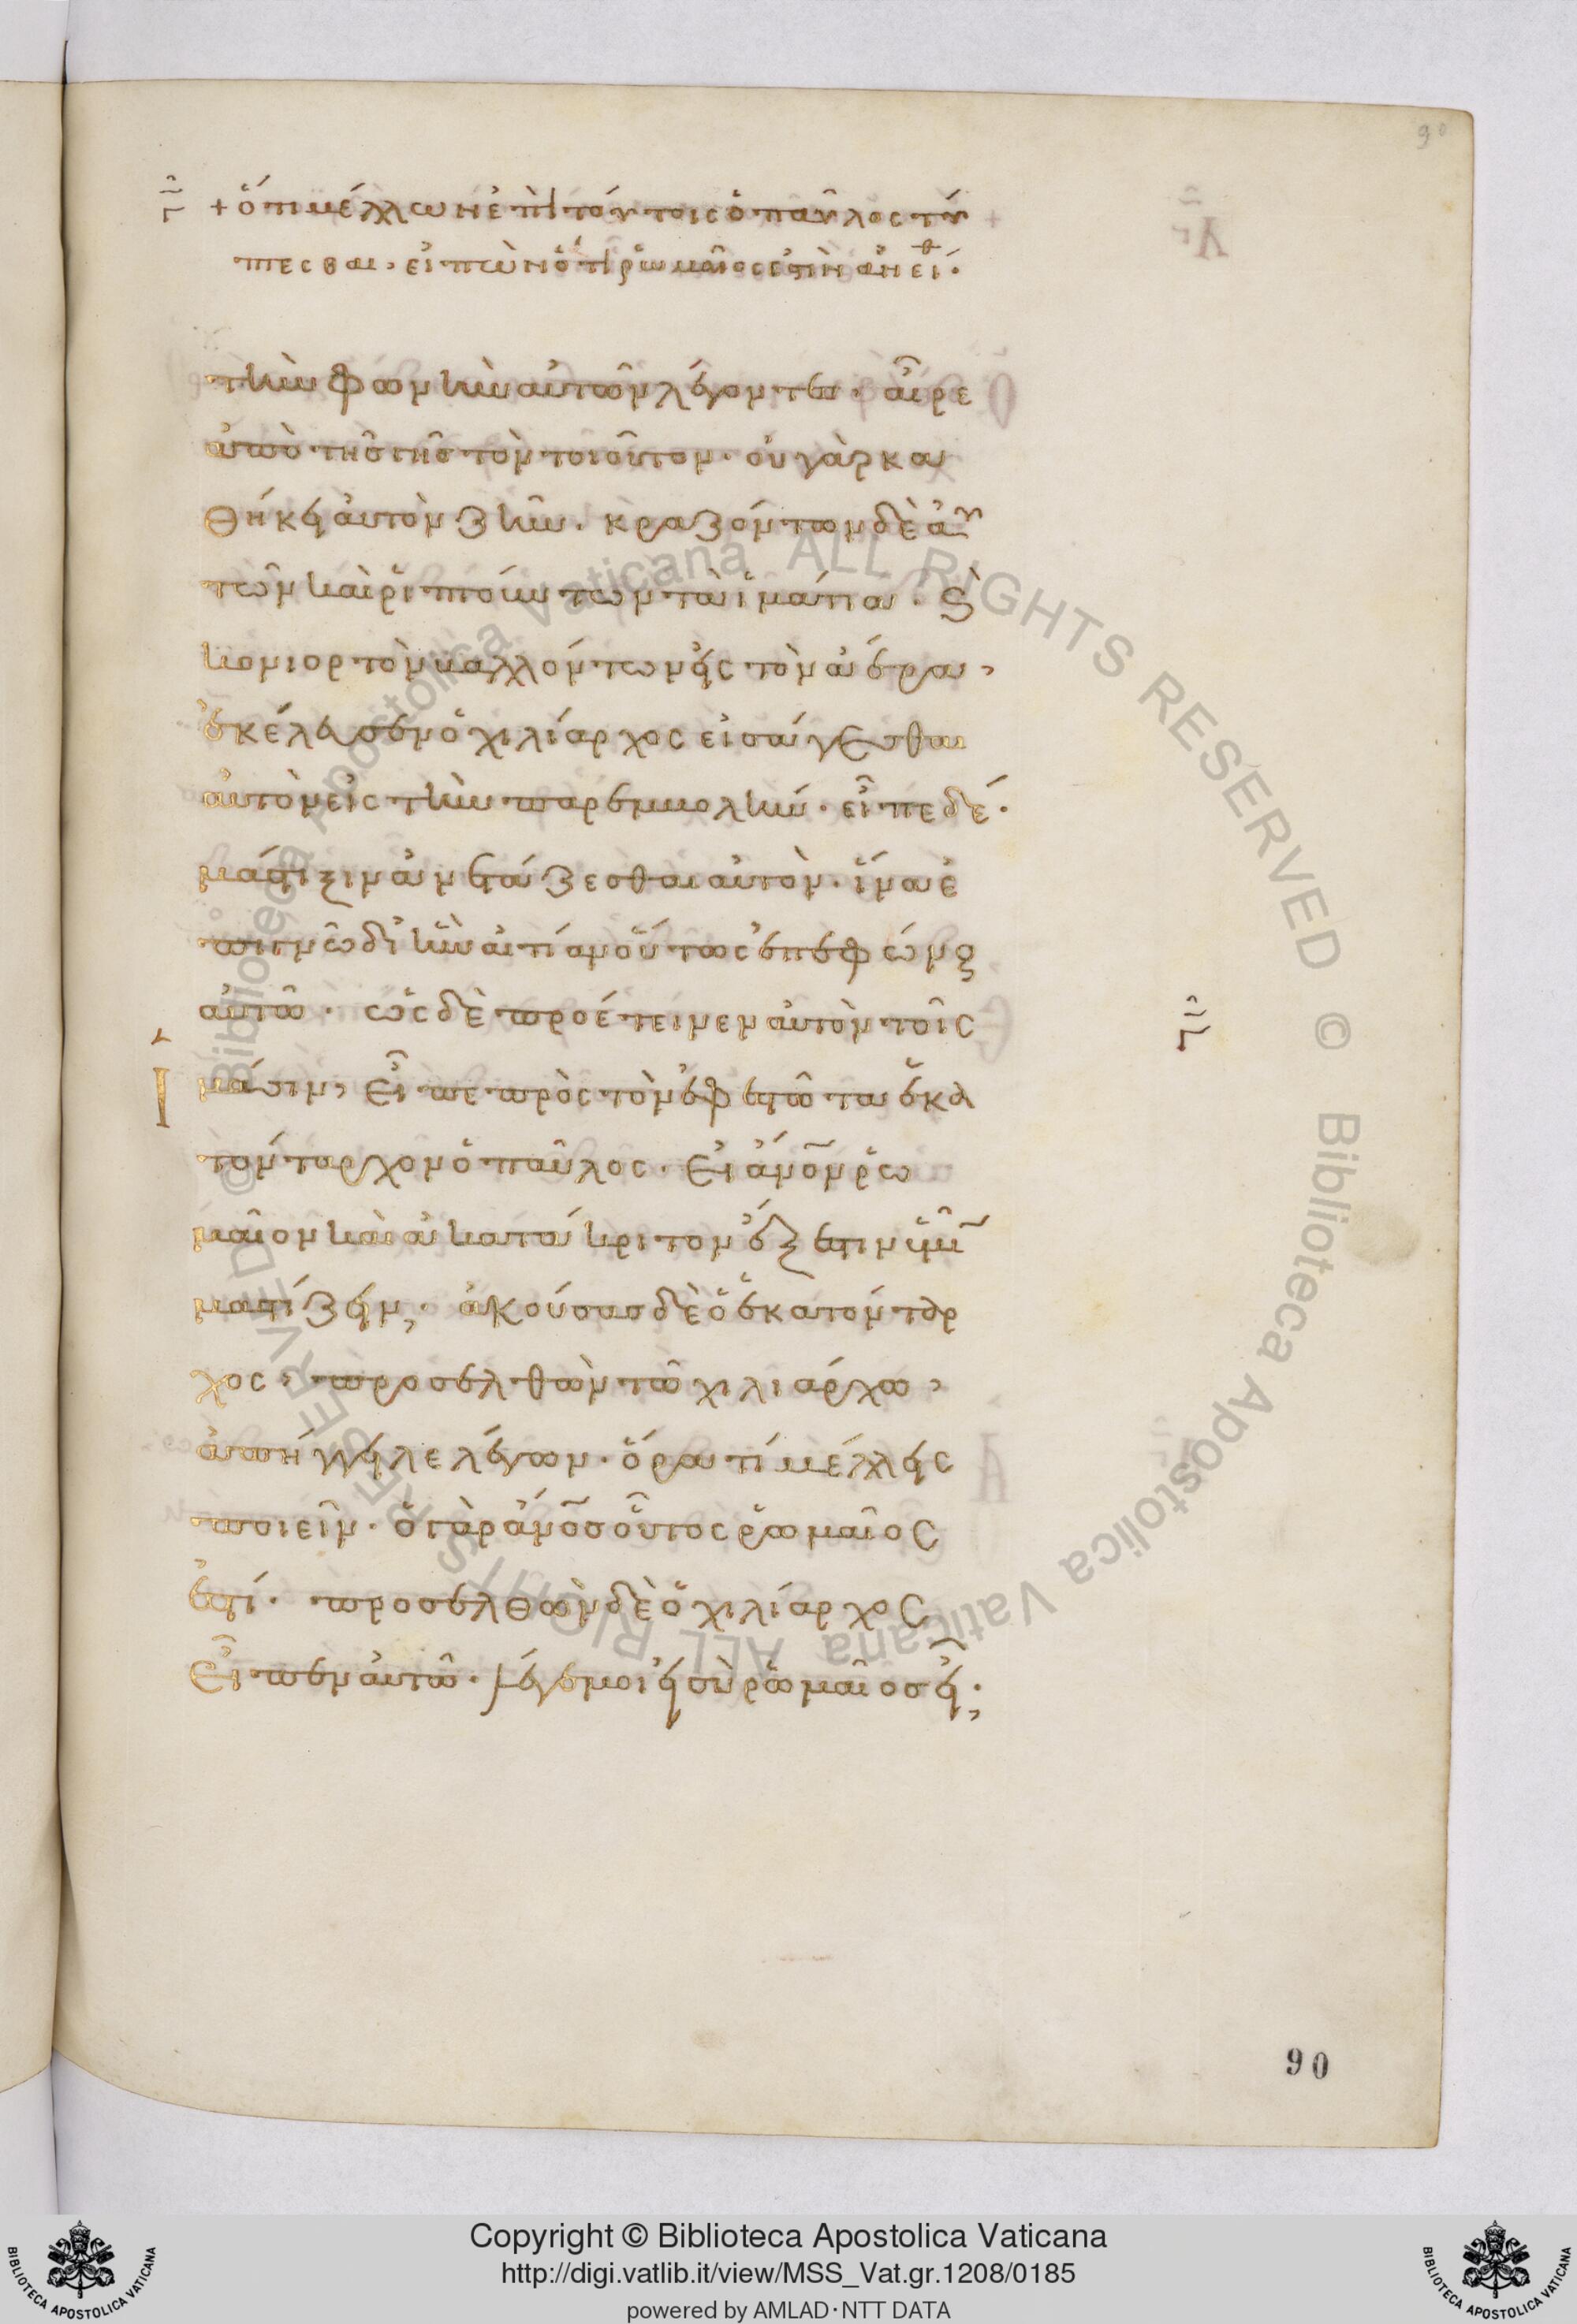 90
λη
+ ὅτι μέλλων ἐπὶ τούτοις ὁ παῦλος τύ
πτεσθαι, εἰπὼν ὅτι ῥωμαῖός ἐστιν ἀνείθ.
τὴν φωνὴν αὐτῶν λέγοντες. αἶρε
ἀπὸ τῆς γῆς τὸν τοιοῦτον. οὐ γὰρ κα
θήκει αὐτὸν ζῆν. κραζόντων δὲ αὐ
τῶν καὶ ῥιπτούντων τὰ ἱμάτια. καὶ
κονιορτὸν βαλλόντων εἰς τὸν ἀέρα,
ἐκέλευσεν ὁ χιλίαρχος εἰσάγεσθαι
αὐτὸν εἰς τὴν παρεμβολήν. εἶπε δέ.
μάστιξιν ἀνετάζεσθαι αὐτὸν. ἵνα ἐ
πιγνῶ δι ἣν αἰτίαν οὕτως ἐπεφώνουν
αὐτῶ. ὡς δὲ προέτεινεν αὐτὸν τοῖς
ἱμάσιν, εἶπε πρὸς τὸν ἐφεστῶτα ἑκα
τόνταρχον ὁ παῦλος. εἰ ἄνον ῥω
μαῖον καὶ ἀκατάκριτον ἔξεστιν ὑμῖν
μαστίζειν; ἀκούσας δὲ ὁ ἑκατόνταρ
χος, προσελθὼν τῶ χιλιάρχω,
ἀπήγγειλε λέγων. ὅρα τί μέλλεις
ποιεῖν. ὁ γὰρ ἄνος οὗτος ῥωμαῖος
ἐστί. προσελθὼν δὲ ὁ χιλίαρχος
εἶπεν αὐτῶ. λέγε μοι εἰ σὺ ῥωμαῖος εἶ;
90
© Biblioteca Apostolica Vaticana ALL RIGHTS RESERVED © Biblioteca Apostolica Vaticana ALL RIGHTS RESERVED
Copyright © Biblioteca Apostolica Vaticana
http://digi.vatlib.it/view/MSS_Vat.gr.1208/0185
powered by AMLAD·NTT DATA
BIBLIOTECA APOSTOLICA VATICANA
BIBLIOTECA APOSTOLICA VATICANA